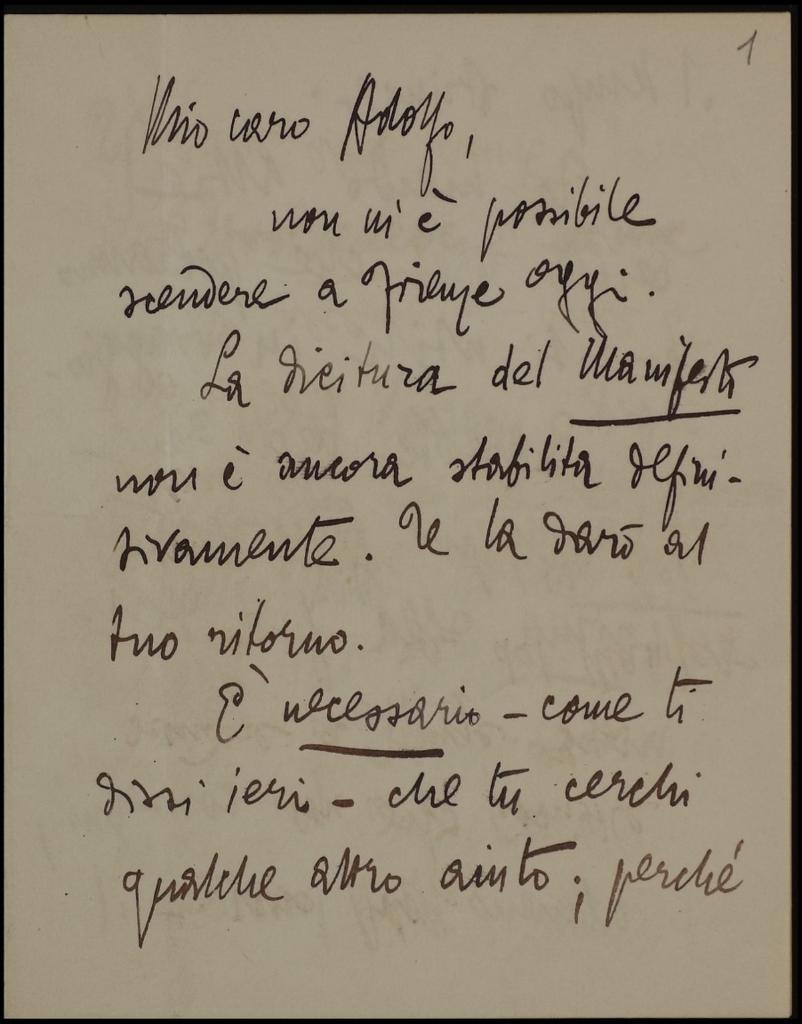 1
Mio caro Adolfo,
non m'è possibile
scendere a Firenze oggi.
La dicitura del Manifesto
non è ancora stabilita defini-
tivamente. Te la darò al
tuo ritorno.
È necessario – come ti
dissi ieri – che tu cerchi
qualche altro aiuto; perché